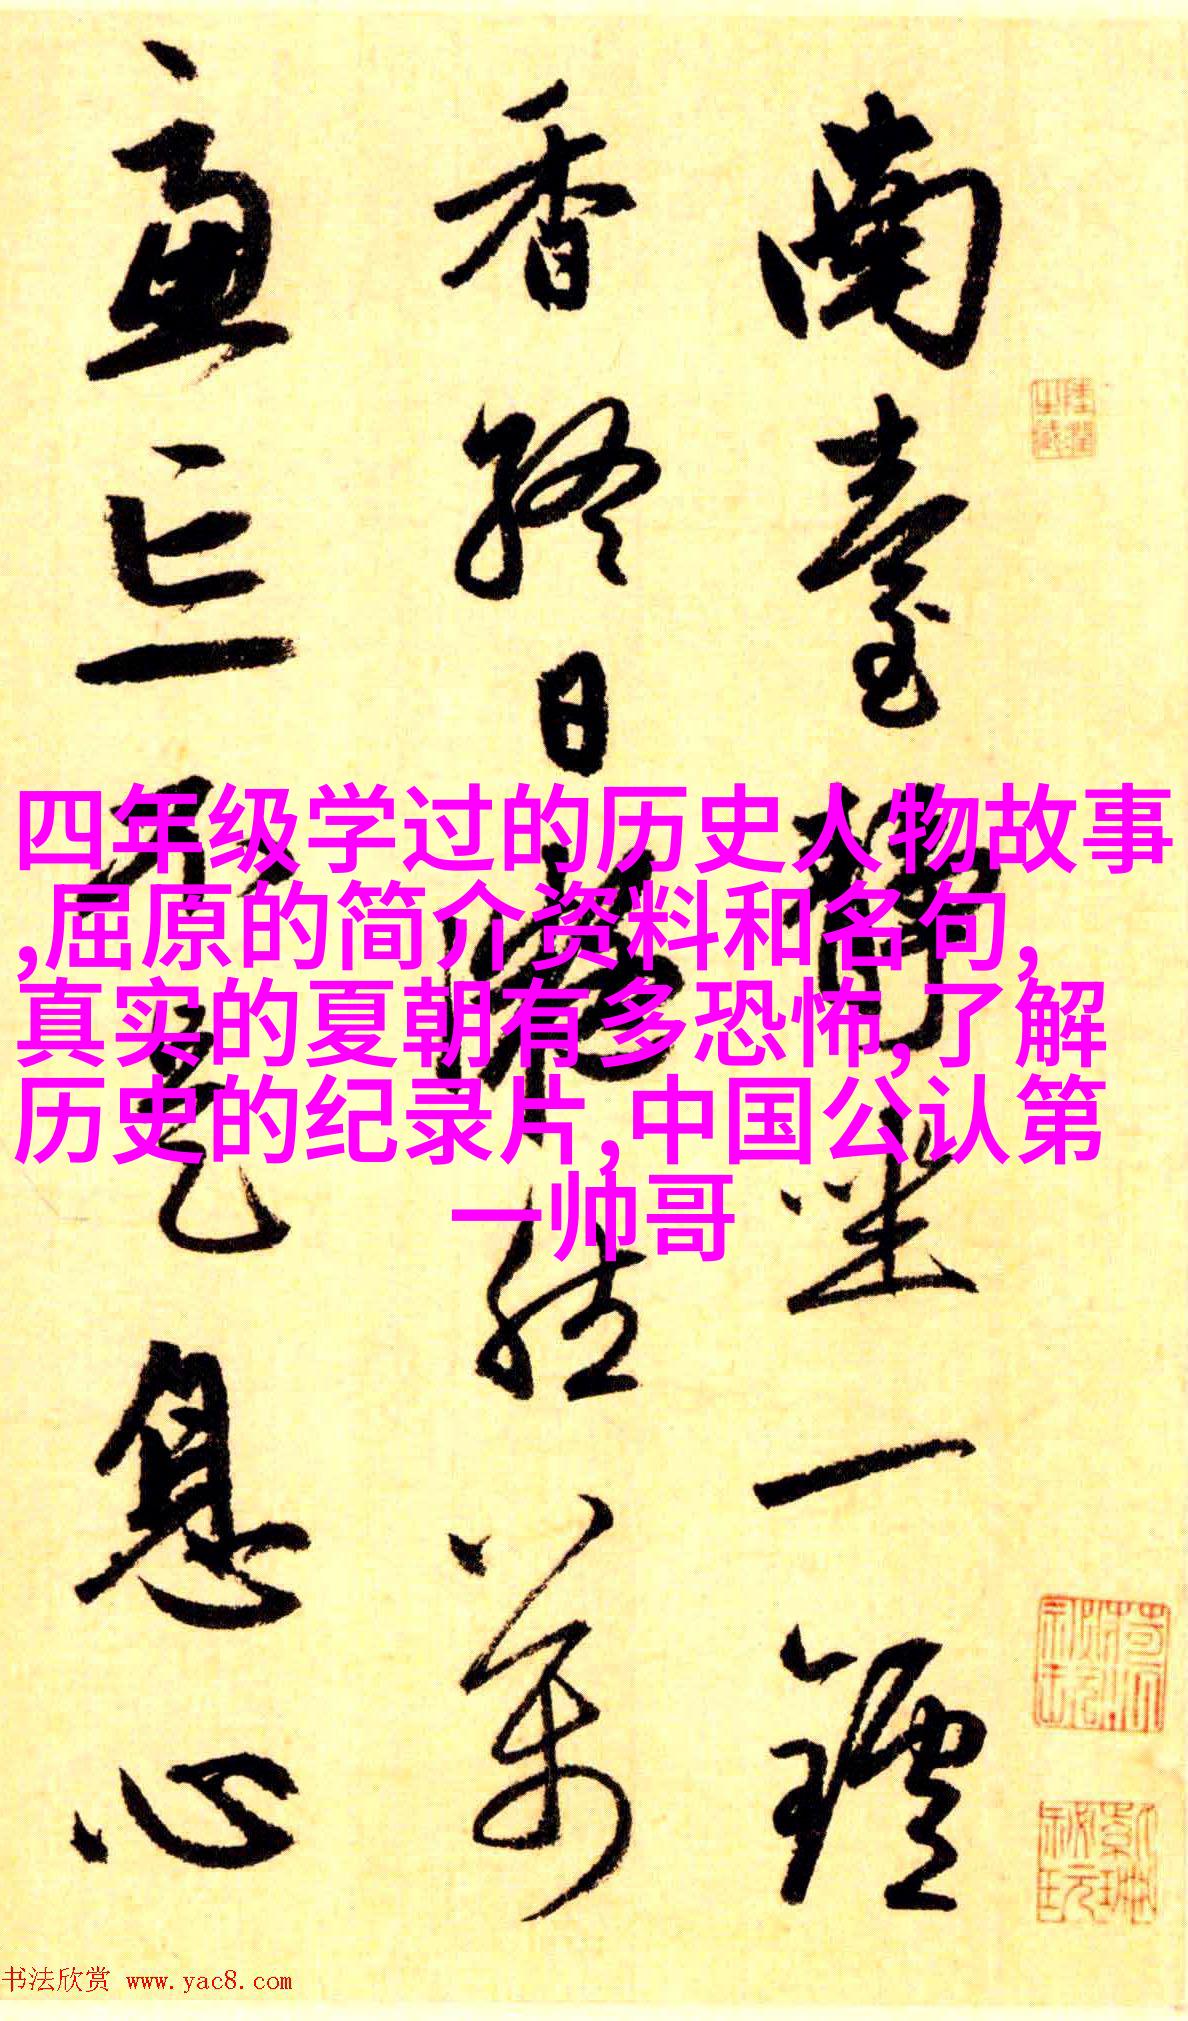 南臺靜坐一鑪
香終日凝然萬
慮忘不是息心
四年级学过的历史人物故事
,屈原的简介资料和名句,
真实的夏朝有多恐怖,了解
历史的纪录片,中国公认第
一帅哥
书法欣赏 www.yac8.com